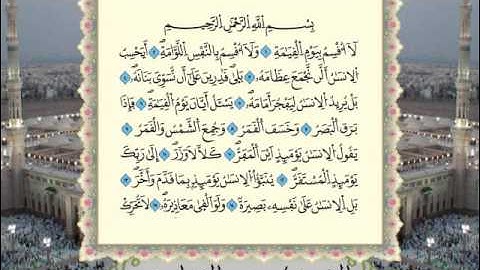 بِسْمِ اللَّهِ الرَّحْمَٰنِ الرَّحِيمِ
لَآ أُقْسِمُ بِيَوْمِ الْقِيَٰمَةِ وَلَآ أُقْسِمُ بِالنَّفْسِ اللَّوَّامَةِ أَيَحْسِبُ
الْإِنسَٰنُ أَلَّن نَّجْمَعَ عِظَامَهُۥ بَلَىٰ قَٰدِرِينَ عَلَىٰٓ أَن نُّسَوِّيَ بَنَانَهُۥ
بَلْ يُرِيدُ الْإِنسَٰنُ لِيَفْجُرَ أَمَامَهُۥ يَسْـَٔلُ أَيَّانَ يَوْمُ الْقِيَٰمَةِ فَإِذَا
بَرَقَ الْبَصَرُ وَخَسَفَ الْقَمَرُ وَجُمِعَ الشَّمْسُ وَالْقَمَرُ
يَقُولُ الْإِنسَٰنُ يَوْمَئِذٍ أَيْنَ الْمَفَرُّ كَلَّا لَا وَزَرَ إِلَىٰ رَبِّكَ
يَوْمَئِذٍ الْمُسْتَقَرُّ يُنَبَّؤُا الْإِنسَٰنُ يَوْمَئِذٍ بِمَا قَدَّمَ وَأَخَّرَ
بَلِ الْإِنسَٰنُ عَلَىٰ نَفْسِهِۦ بَصِيرَةٌ وَلَوْ أَلْقَىٰ مَعَاذِيرَهُۥ لَا تُحَرِّكْ